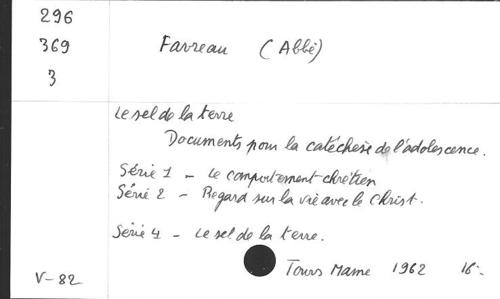 296
369
3
Favreau (Abbé)
Le sel de la terre
Documents pour la catéchèse de l'adolescence.
Série 1 - Le comportement chrétien
Série 2 - Regard sur la vie avec le Christ.
Série 4 - Le sel de la terre.
Tours Mame 1962 16-
V-82